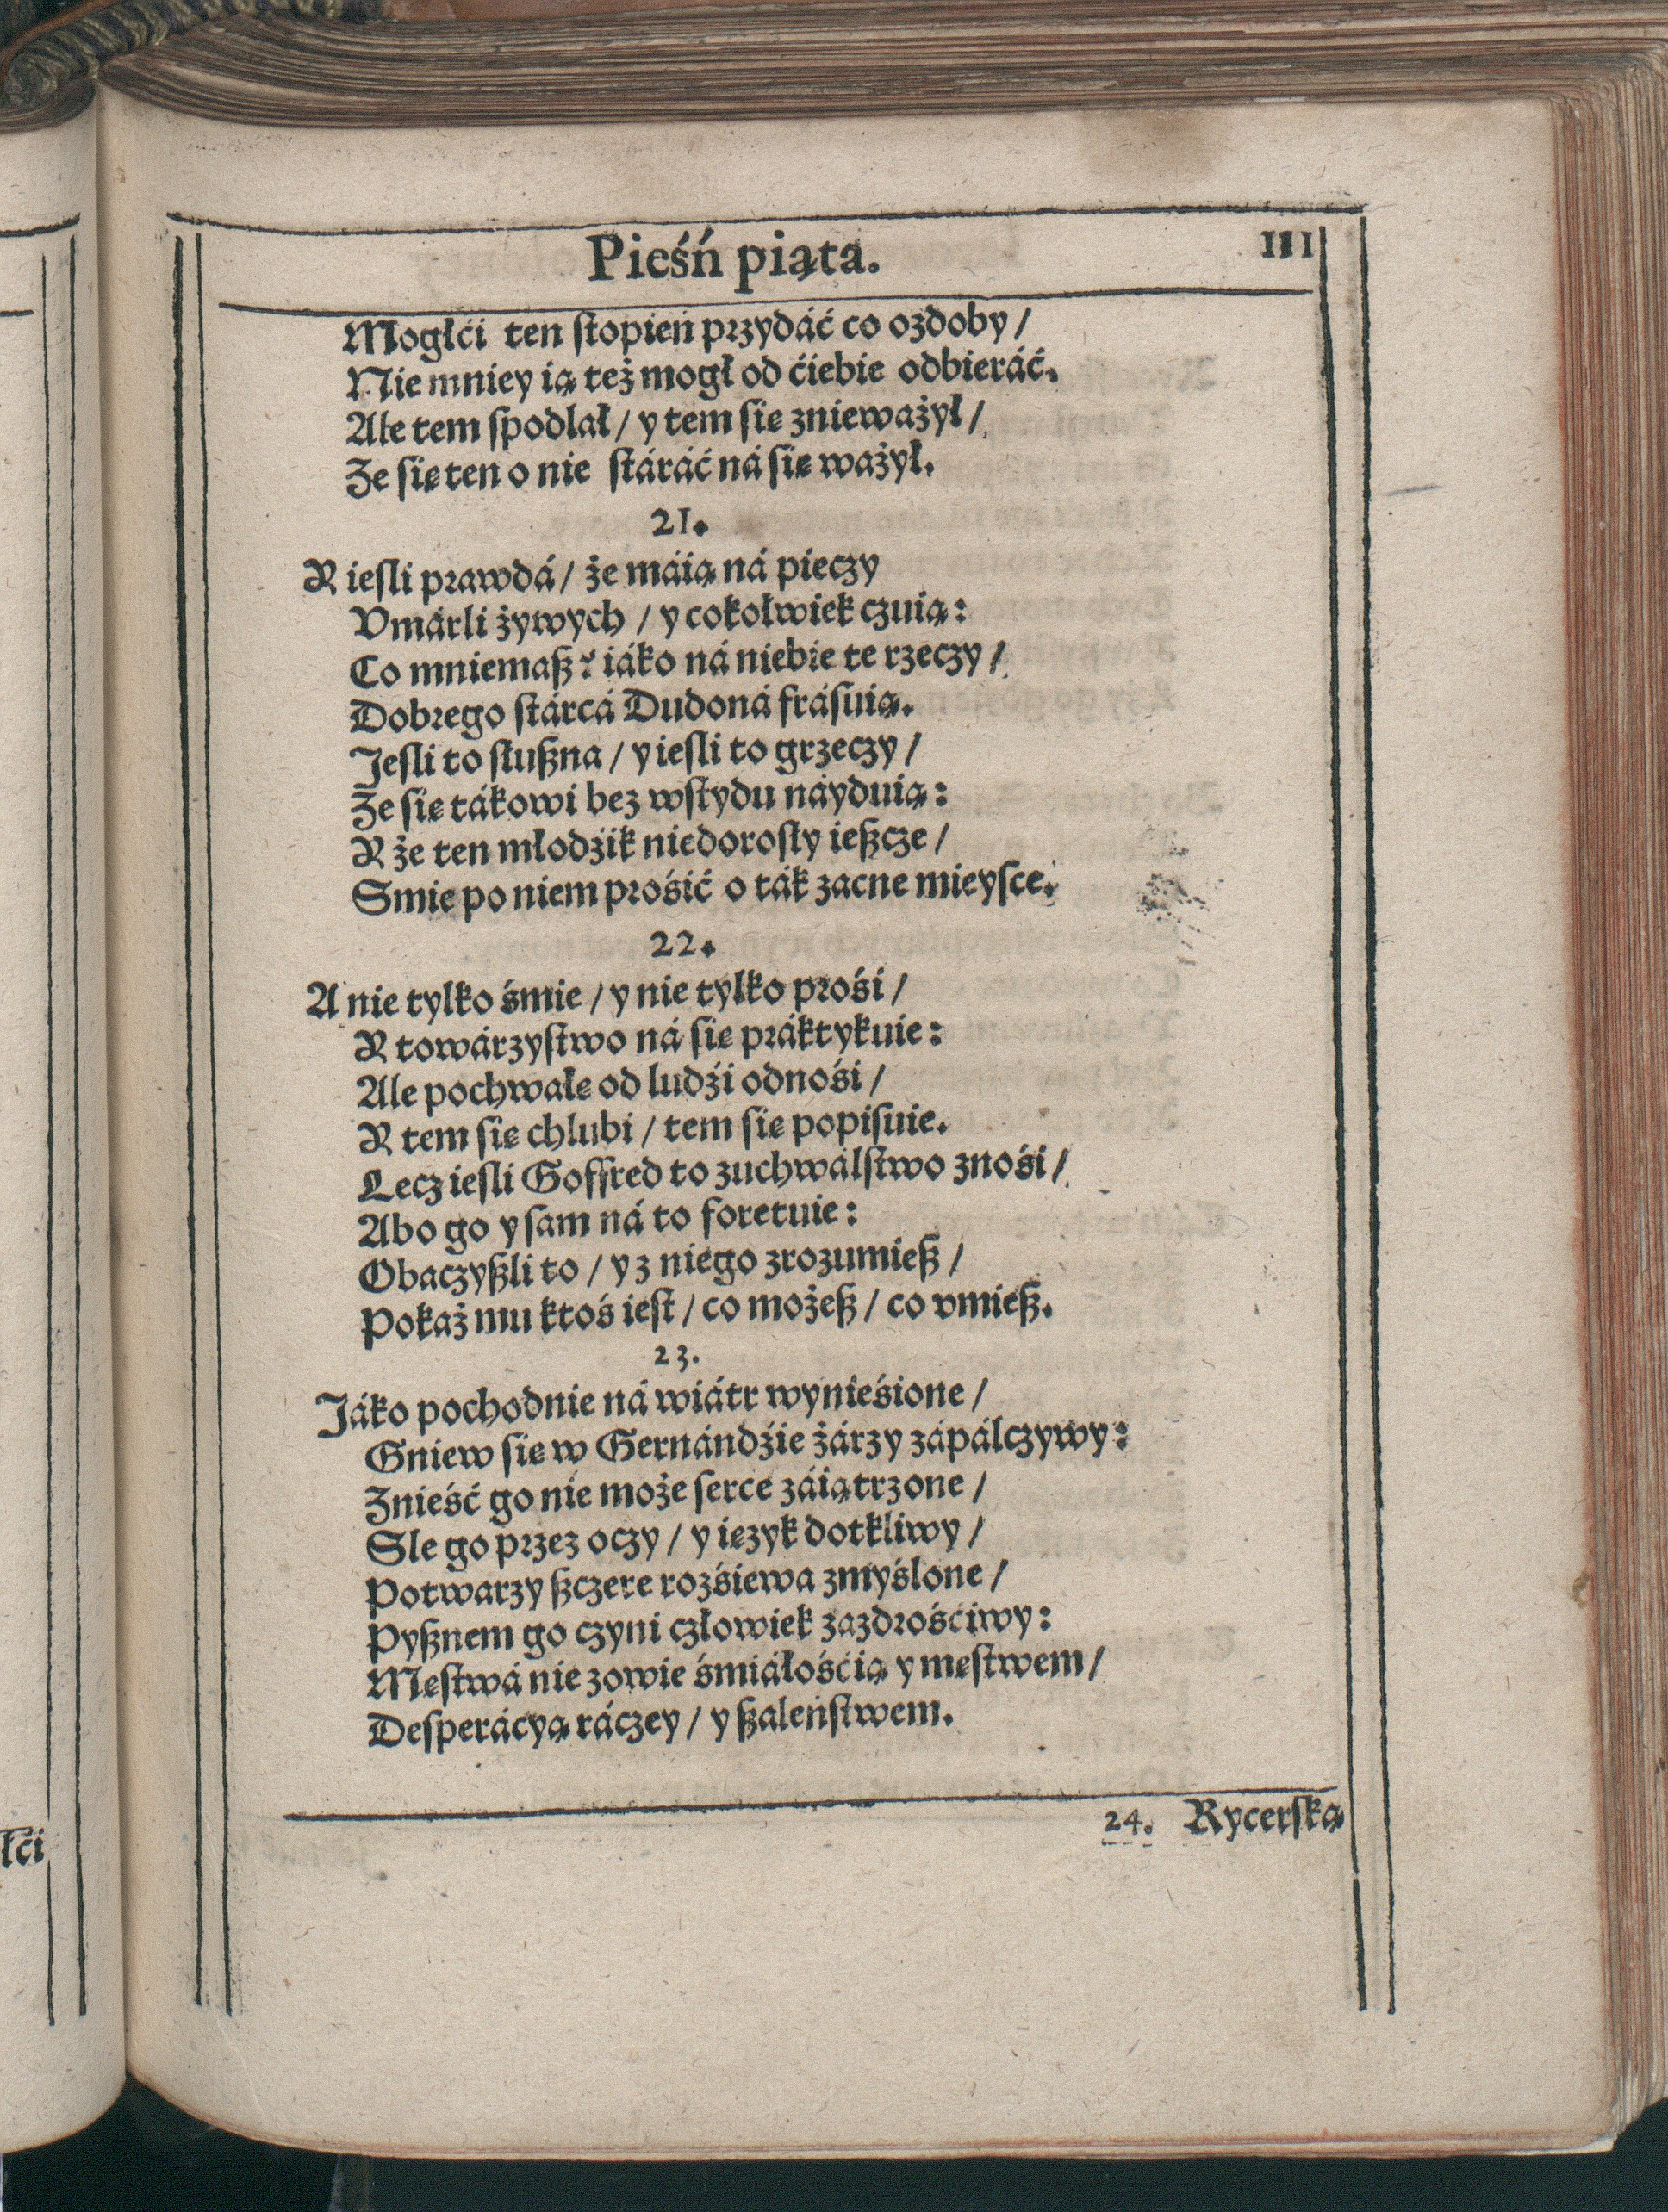 Pieśń piąta.
111
Mogłći ten stopień przydáć co ozdoby /
Nie mniey ią też mogł od ćiebie odbieráć.
Ale tem spodlał / y tem się znieważył /
Że się ten o nie stáráć ná się ważył.
21.
Y iesli prawdá / że máią ná pieczy
Vmárli żywych / y cokolwiek czuią:
Co mniemasz? iáko ná niebie te rzeczy /
Dobrego stárcá Dudoná frásuią.
Jesli to słuszna / y iesli to grzeczy /
Że się tákowi bez wstydu náyduią:
Y że ten młodźik niedorosły ieszcze /
Smie po niem prośić o ták zacne mieysce.
22.
A nie tylko śmie / y nie tylko prośi /
Y towárzystwo ná się práktykuie:
Ale pochwałę od ludźi odnośi /
Y tem się chlubi / tem się popisuie.
Lecz iesli Goffred to zuchwálstwo znośi /
Abo go y sam ná to foretuie:
Obaczyszli to / y z niego zrozumiesz /
Pokaż mu ktoś iest / co możesz / co vmiesz.
23.
Jáko pochodnie ná wiátr wynieśione /
Gniew się w Gernándźie żárzy zápálczywy:
Znieść go nie może serce záiątrzone /
Sle go przez oczy / y ięzyk dotkliwy /
Potwarzy szczere rozśiewa zmyślone /
Pysznem go czyni człowiek zazdrośćiwy:
Męstwá nie zowie śmiáłośćią y męstwem /
Desperácyą ráczey / y szaleństwem.
24. Rycerską
łći